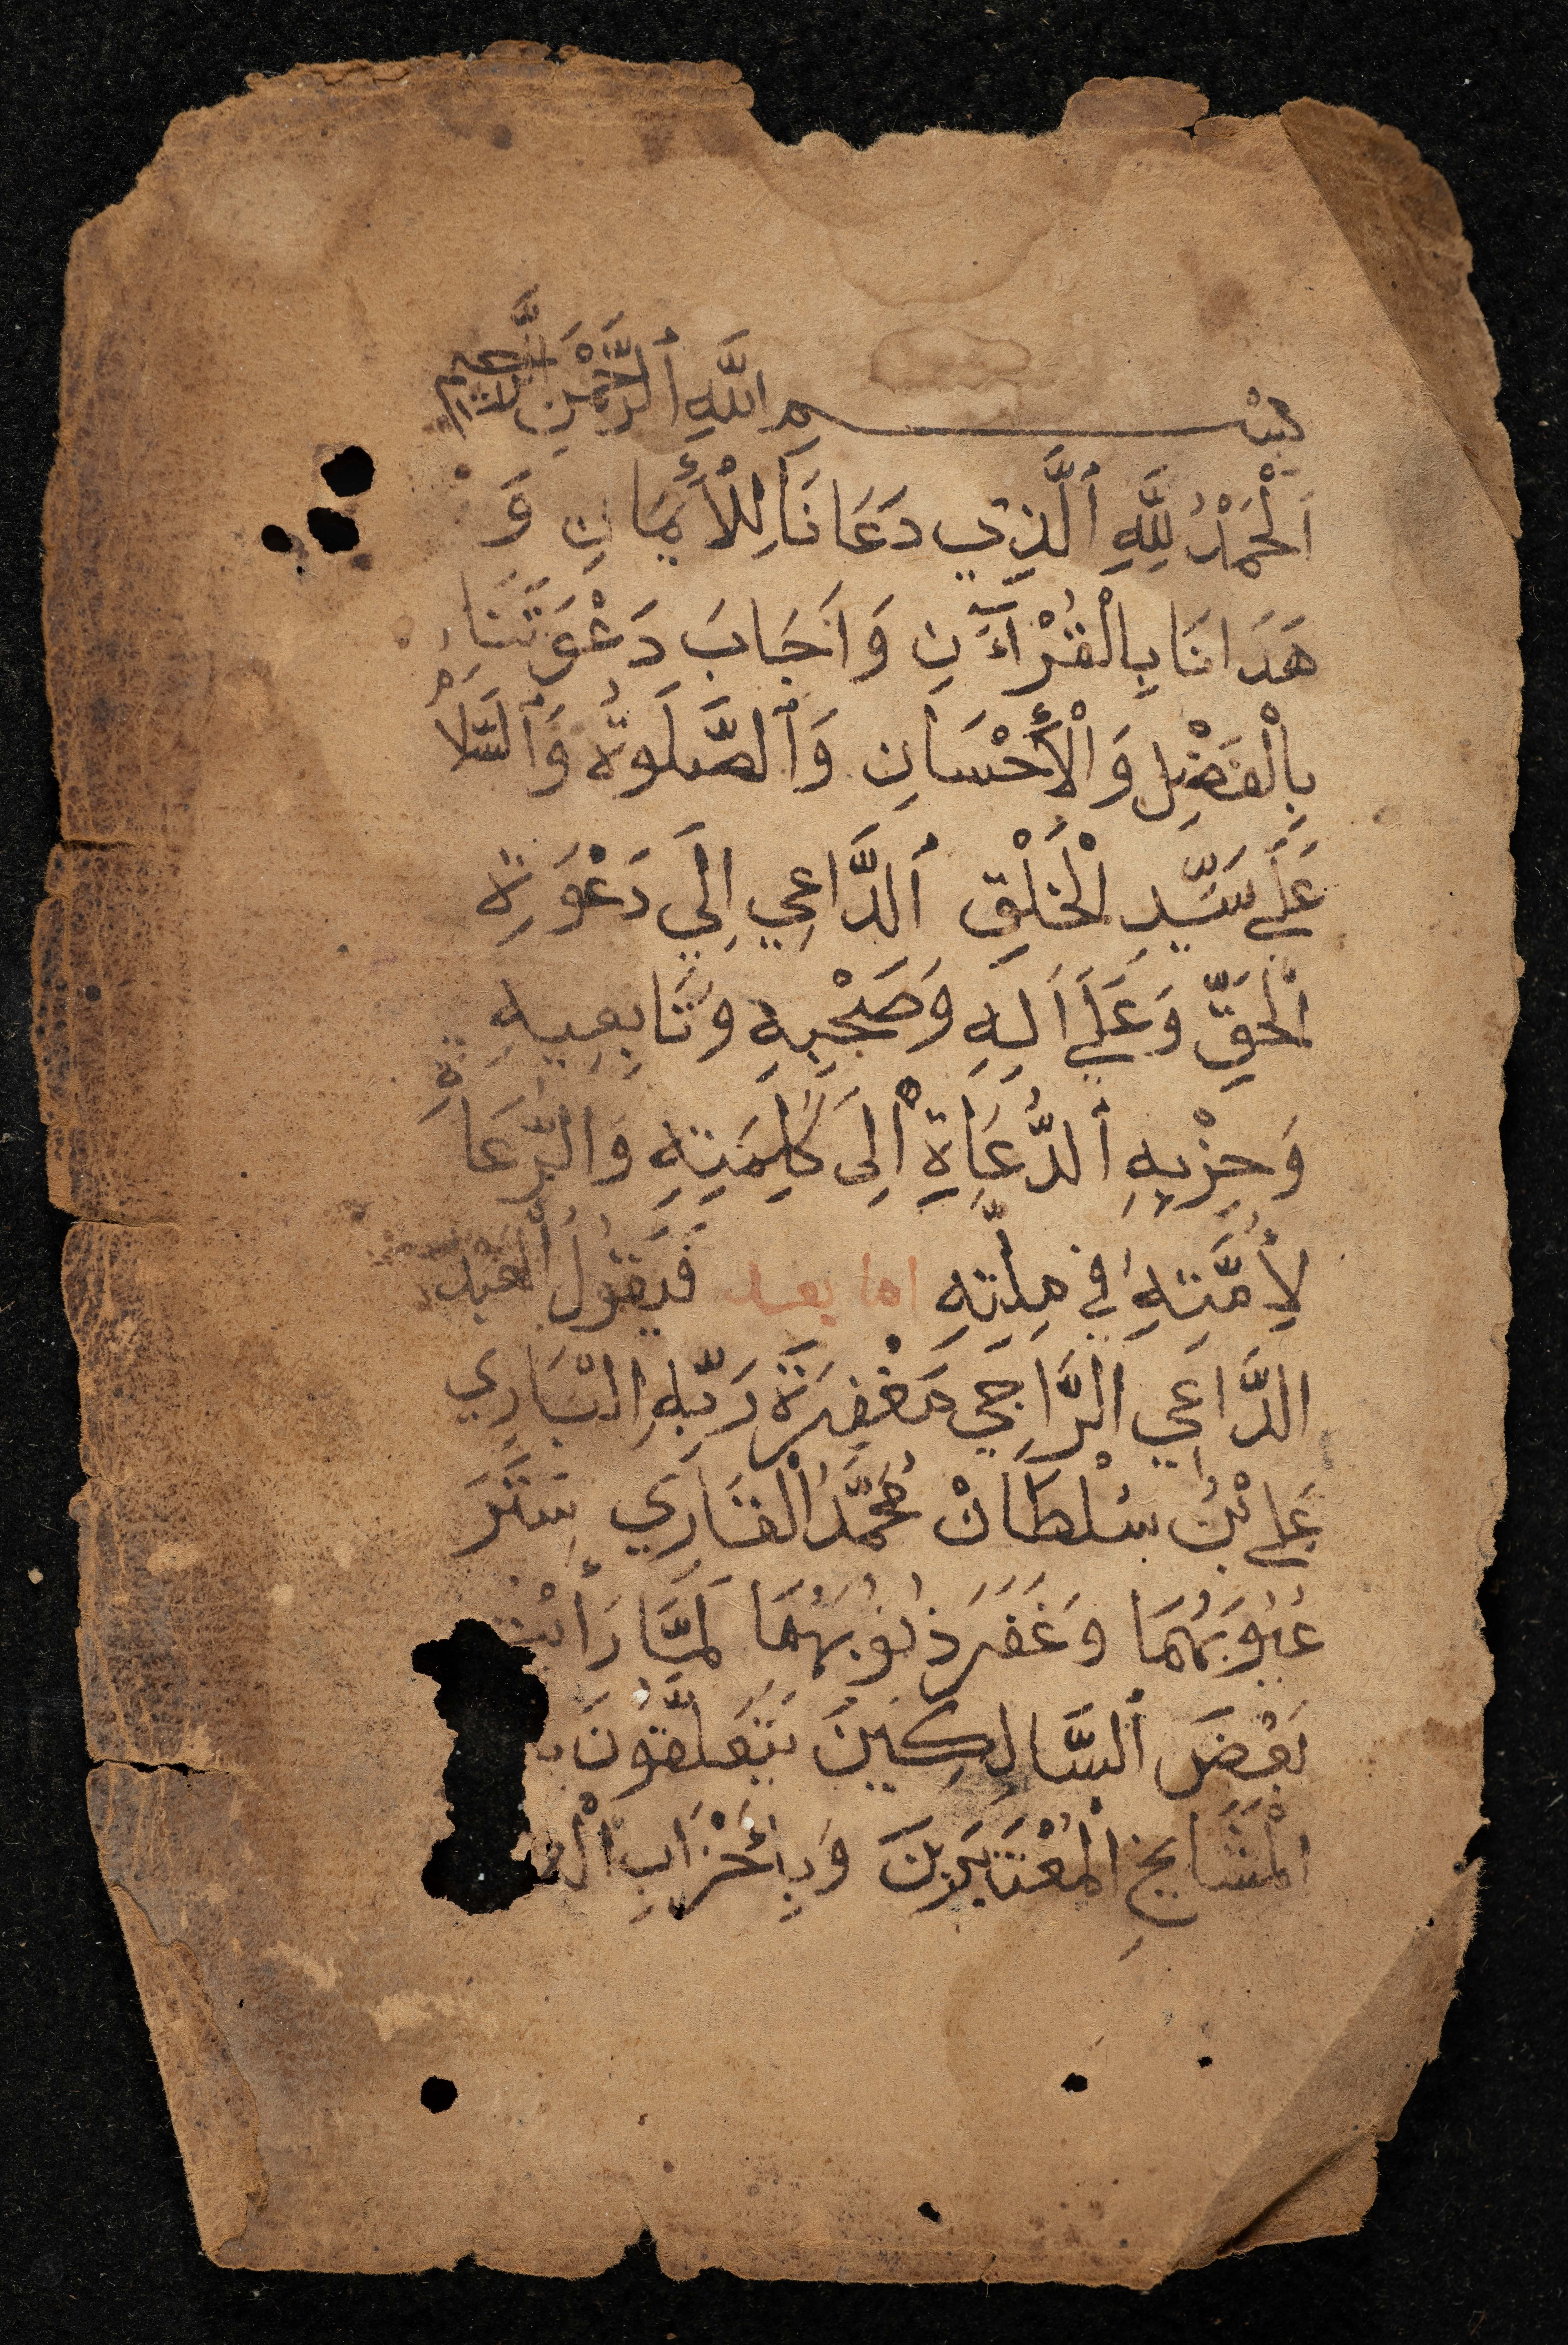 بِسْمِ اللَّهِ ٱلرَّحْمَنِ ٱلرَّحِيمِ
اَلْحَمْدُ لِلَّهِ ٱلَّذِي دَعَانَا لِلْأَيمَانِ وَ
هَدَانَا بِالْقُرْآَنِ وَاَجَابَ دَعْوَتَنَا
بِالْفَضْلِ وَالْأَحْسَانِ وَٱلصَّلَوةُ وَٱلسَّلَامُ
عَلَى سَيِّدِ الْخَلْقِ ٱلدَّاعِي اِلَي دَعْوَةِ
الْحَقِّ وَعَلَى اَلِهِ وَصَحْبِهِ وَتَابِعِيهِ
وَحِزْبِهِ ٱلدُّعَاةِ اِلَى كَلِمَتِهِ وَالرُّعَاةِ
لِأُمَّتِهِ فِي مِلَّتِهِ اما بعد فَيَقُولُ الْعَبْدُ
الدَّاعِي الرَّاجِي مَغْفِرَةَ رَبِّهِ الْبَارِي
عَلِي بْنُ سُلْطَانْ مُحَمَّدُ الْقَارِي سَتَرَ
عُيُوبَهُمَا وَغَفَرَ ذُنُوبَهُمَا لَمَّا رَأَيْتُ
بَعْضَ ٱلسَّالِكِينَ يَتَعَلَّقُونَ
الْمَشَايِخِ الْمُعْتَبَرِينَ وَبِأَحْزَابِ